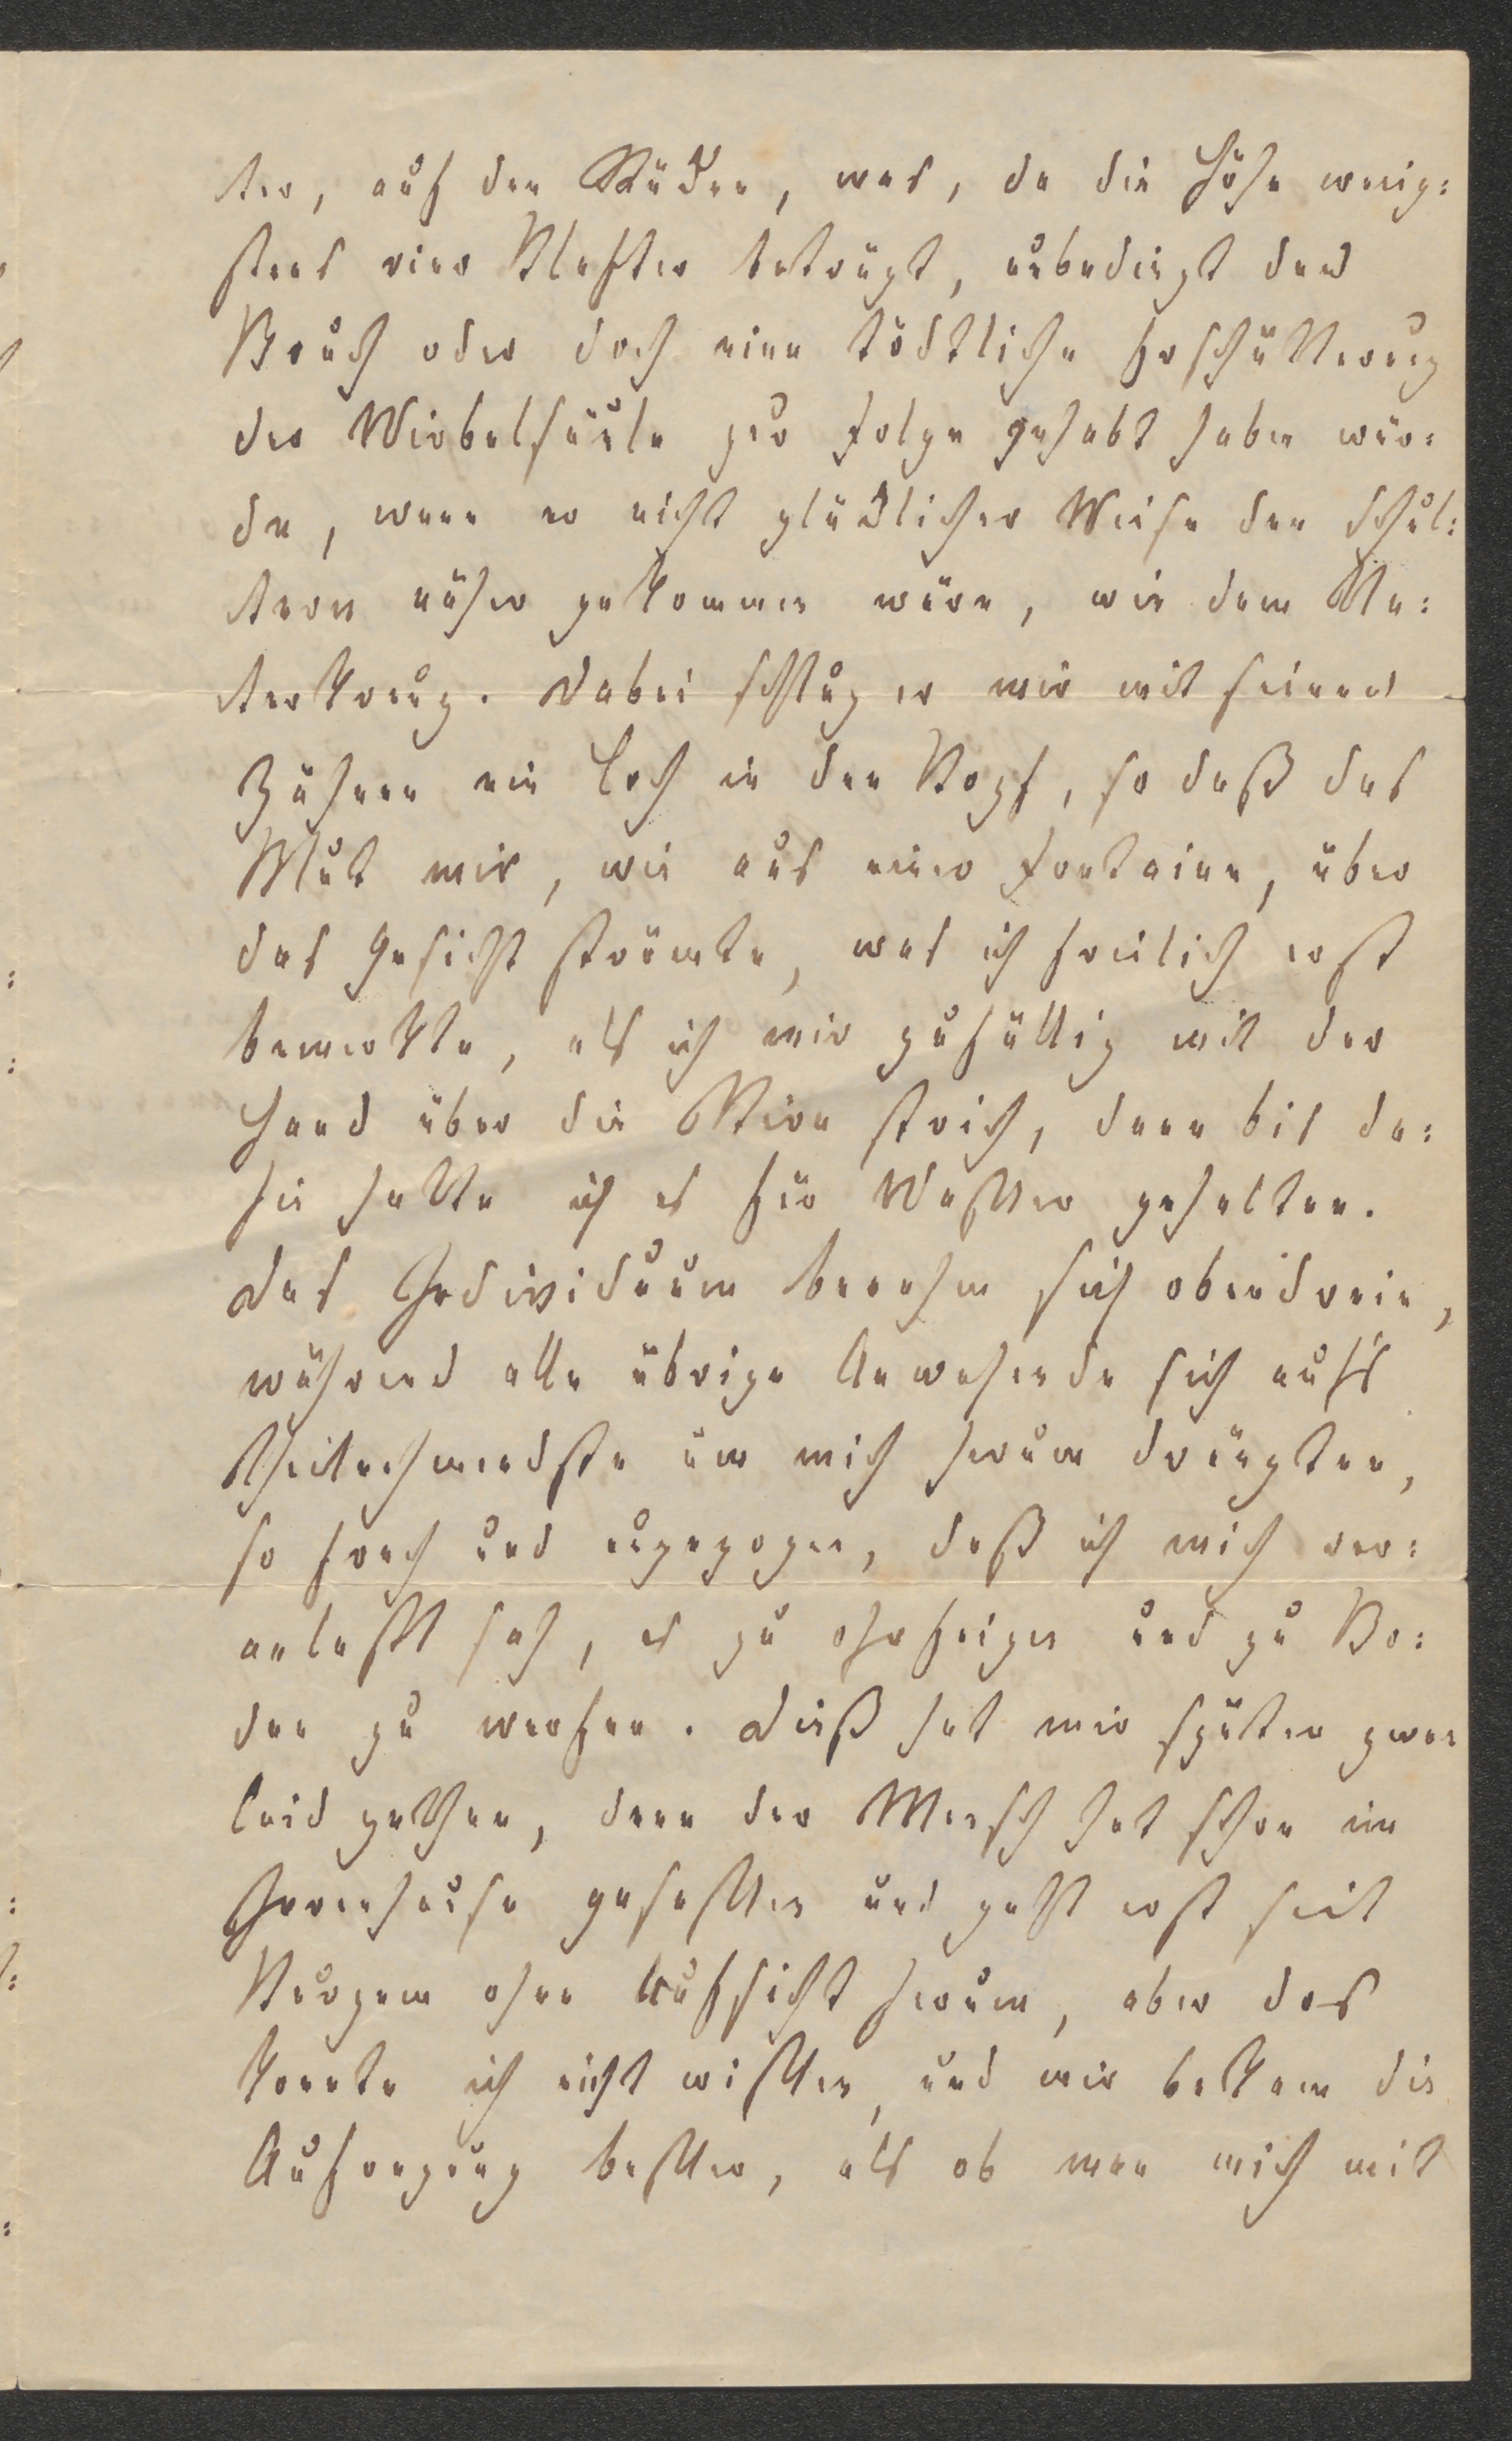 ter, auf den Rücken, was, da die Höhe wenig:
stens vier Klafter beträgt, unbedingt den
Bruch oder doch eine tödtliche Erschütterung
der Wirbelsäule zur Folge gehabt haben wür:
de, wenn er nicht glücklicher Weise den Schul:
tern näher gekommen wäre, wie dem Un:
terkreuz. Dabei schlug er mir mit seinen
Zähnen ein Loch in den Kopf, so daß das
Blut mir, wie aus einer Fontaine, über
das Gesicht strömte, was ich freilich erst
bemerkte, als ich mir zufällig mit der
Hand über die Stirn strich, denn bis da:
hin hatte ich es für Wasser gehalten.
Das Individuum benahm sich obendrein,
während alle übrige Anwesende sich aufs
Theilnehmendste um mich herum drängten,
so frech und ungezogen, daß ich mich ver:
anlaßt sah, es zu ohrfeigen und zu Bo:
den zu werfen. Dieß hat mir später zwar
leid gethan, denn der Mensch hat schon im
Irrenhause gesessen und geht erst seit
Kurzem ohne Aufsicht herum, aber das
konnte ich nicht wissen, und mir bekam die
Aufregung besser, als ob man mich mit